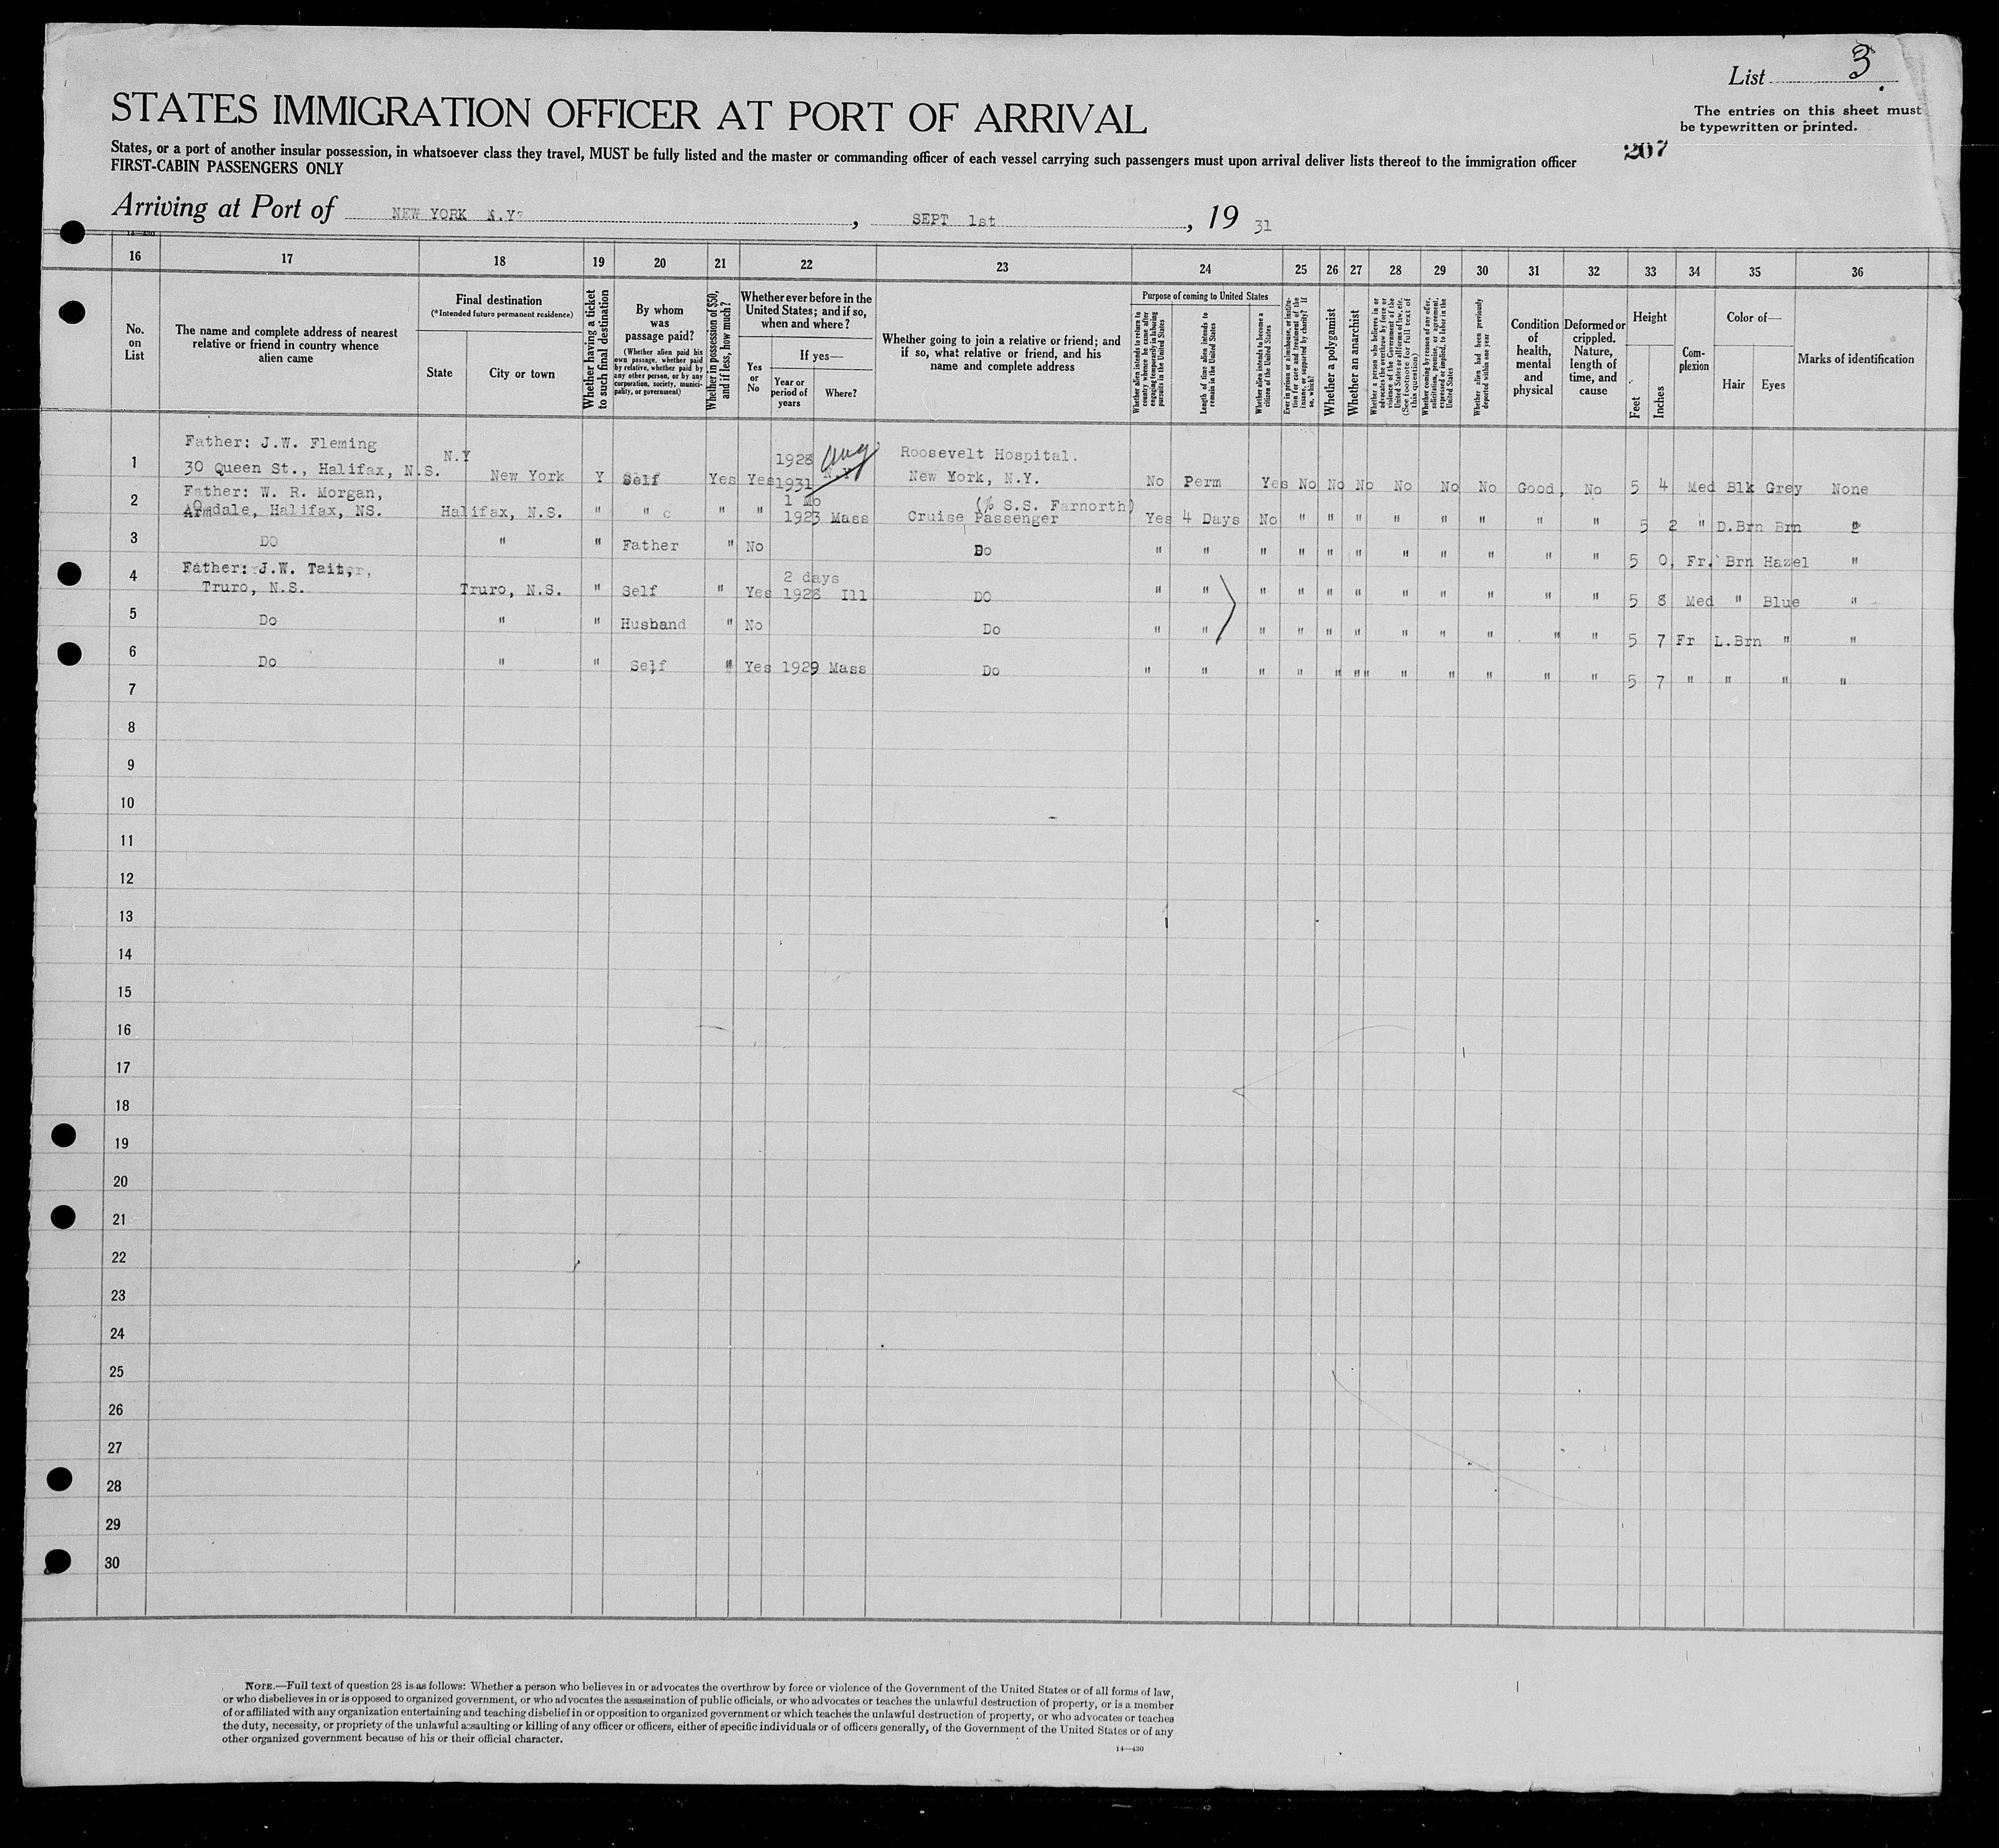 List 3
STATES IMMIGRATION OFFICER AT PORT OF ARRIVAL
The entries on this sheet must
be typewritten or printed.
207
States, or a port of another insular possession, in whatsoever class they travel, MUST be fully listed and the master or commanding officer of each vessel carrying such passengers must upon arrival deliver lists thereof to the immigration officer
FIRST-CABIN PASSENGERS ONLY
Arriving at Port of NEW YORK N.Y? , SEPT 1st , 19 31
14—430
16 17 18 19 20 21 22 23 24 25 26 27 28 29 30 31 32 33 34 35 36
No.
on
List
The name and complete address of nearest
relative or friend in country whence
alien came
Final destination
(*Intended future permanent residence)
State
City or town
Whether having a ticket
to such final destination
By whom
was
passage paid?
(Whether alien paid his
own passage, whether paid
by relative, whether paid by
any other person, or by any
corporation, society, munici-
pality, or government)
Whether in possession of $50,
and if less, how much?
Whether ever before in the
United States; and if so,
when and where?
Yes
or
No
If yes—
Year or
period of
years
Where?
Whether going to join a relative or friend; and
if so, what relative or friend, and his
name and complete address
Purpose of coming to United States
Whether alien intends to return to
country whence he came after
engaging temporarily in laboring
pursuits in the United States
Length of time alien intends to
remain in the United States
Whether alien intends to become a
citizen of the United States
Ever in prison or almshouse, or institu-
tion for care and treatment of the
insane, or supported by charity? If
so, which?
Whether a polygamist
Whether an anarchist
Whether a person who believes in or
advocates the overthrow by force or
violence of the Government of the
United States or all forms of law, etc.
(See footnote for full text of
this question)
Whether coming by reason of any offer,
solicitation, promise, or agreement,
expressed or implied, to labor in the
United States
Whether alien had been previously
deported within one year
Condition
of
health,
mental
and
physical
Deformed or
crippled.
Nature,
length of
time, and
cause
Height
Feet
Inches
Com-
plexion
Color of—
Hair
Eyes
Marks of identification
Father: J.W. Fleming N.Y 1928 Aug Roosevelt Hospital.
1 30 Queen St., Halifax, N.S. New York Y Self Yes Yes 1931 N.Y New York, N.Y. No Perm Yes No No No No No No Good, No 5 4 Med Blk Grey None
Father: W. R. Morgan, 1 Mo (% S.S. Farnorth)
2 Armdale, Halifax, NS. Halifax, N.S. " " " " 1923 Mass Cruise Passenger Yes 4 Days No " " " " " " " " 5 2 " D.Brn Brn "
3 DO " " Father " No Do " " " " " " " " " " " 5 0, Fr. Brn Hazel "
4 Father: J.W. Tait, 2 days
Truro, N.S. Truro, N.S. " Self " Yes 1928 Ill DO " " " " " " " " " " " 5 8 Med " Blue "
5 Do " " Husband " No Do " " " " " " " " " " " 5 7 Fr L.Brn " "
6 Do " " Self " Yes 1929 Mass Do " " " " " " " " " " " " 5 7 " " " "
7
8
9
10
11
12
13
14
15
16
17
18
19
20
21
22
23
24
25
26
27
28
29
30
NOTE.—Full text of question 28 is as follows: Whether a person who believes in or advocates the overthrow by force or violence of the Government of the United States or of all forms of law,
or who disbelieves in or is opposed to organized government, or who advocates the assassination of public officials, or who advocates or teaches the unlawful destruction of property, or is a member
of or affiliated with any organization entertaining and teaching disbelief in or opposition to organized government or which teaches the unlawful destruction of property, or who advocates or teaches
the duty, necessity, or propriety of the unlawful assaulting or killing of any officer or officers, either of specific individuals or of officers generally, of the Government of the United States or of any
other organized government because of his or their official character.
14—430